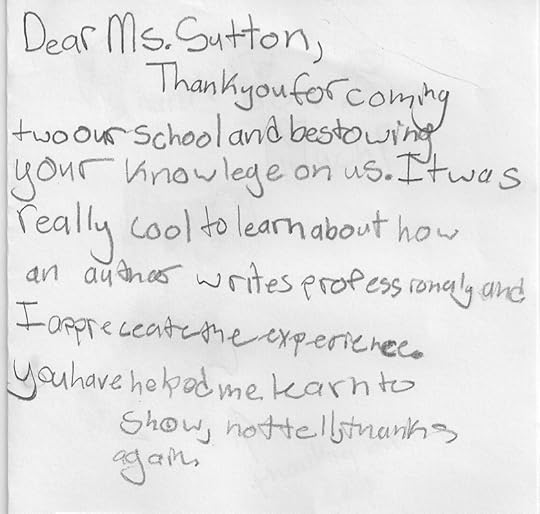 Dear Ms. Sutton,
Thank you for coming
two our school and bestowing
your knowlege on us. It was
really cool to learn about how
an author writes professionaly and
I appreceate the experience.
You have helped me learn to
show, not tell, thanks
again.